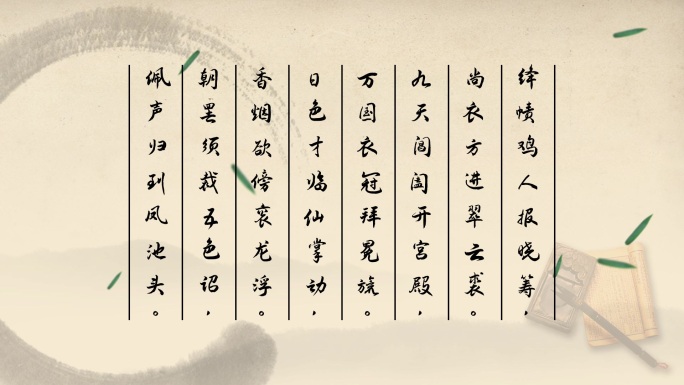 绛帻鸡人报晓筹，
尚衣方进翠云裘。
九天阊阖开宫殿，
万国衣冠拜冕旒。
日色才临仙掌动，
香烟欲傍衮龙浮。
朝罢须裁五色诏，
佩声归到凤池头。